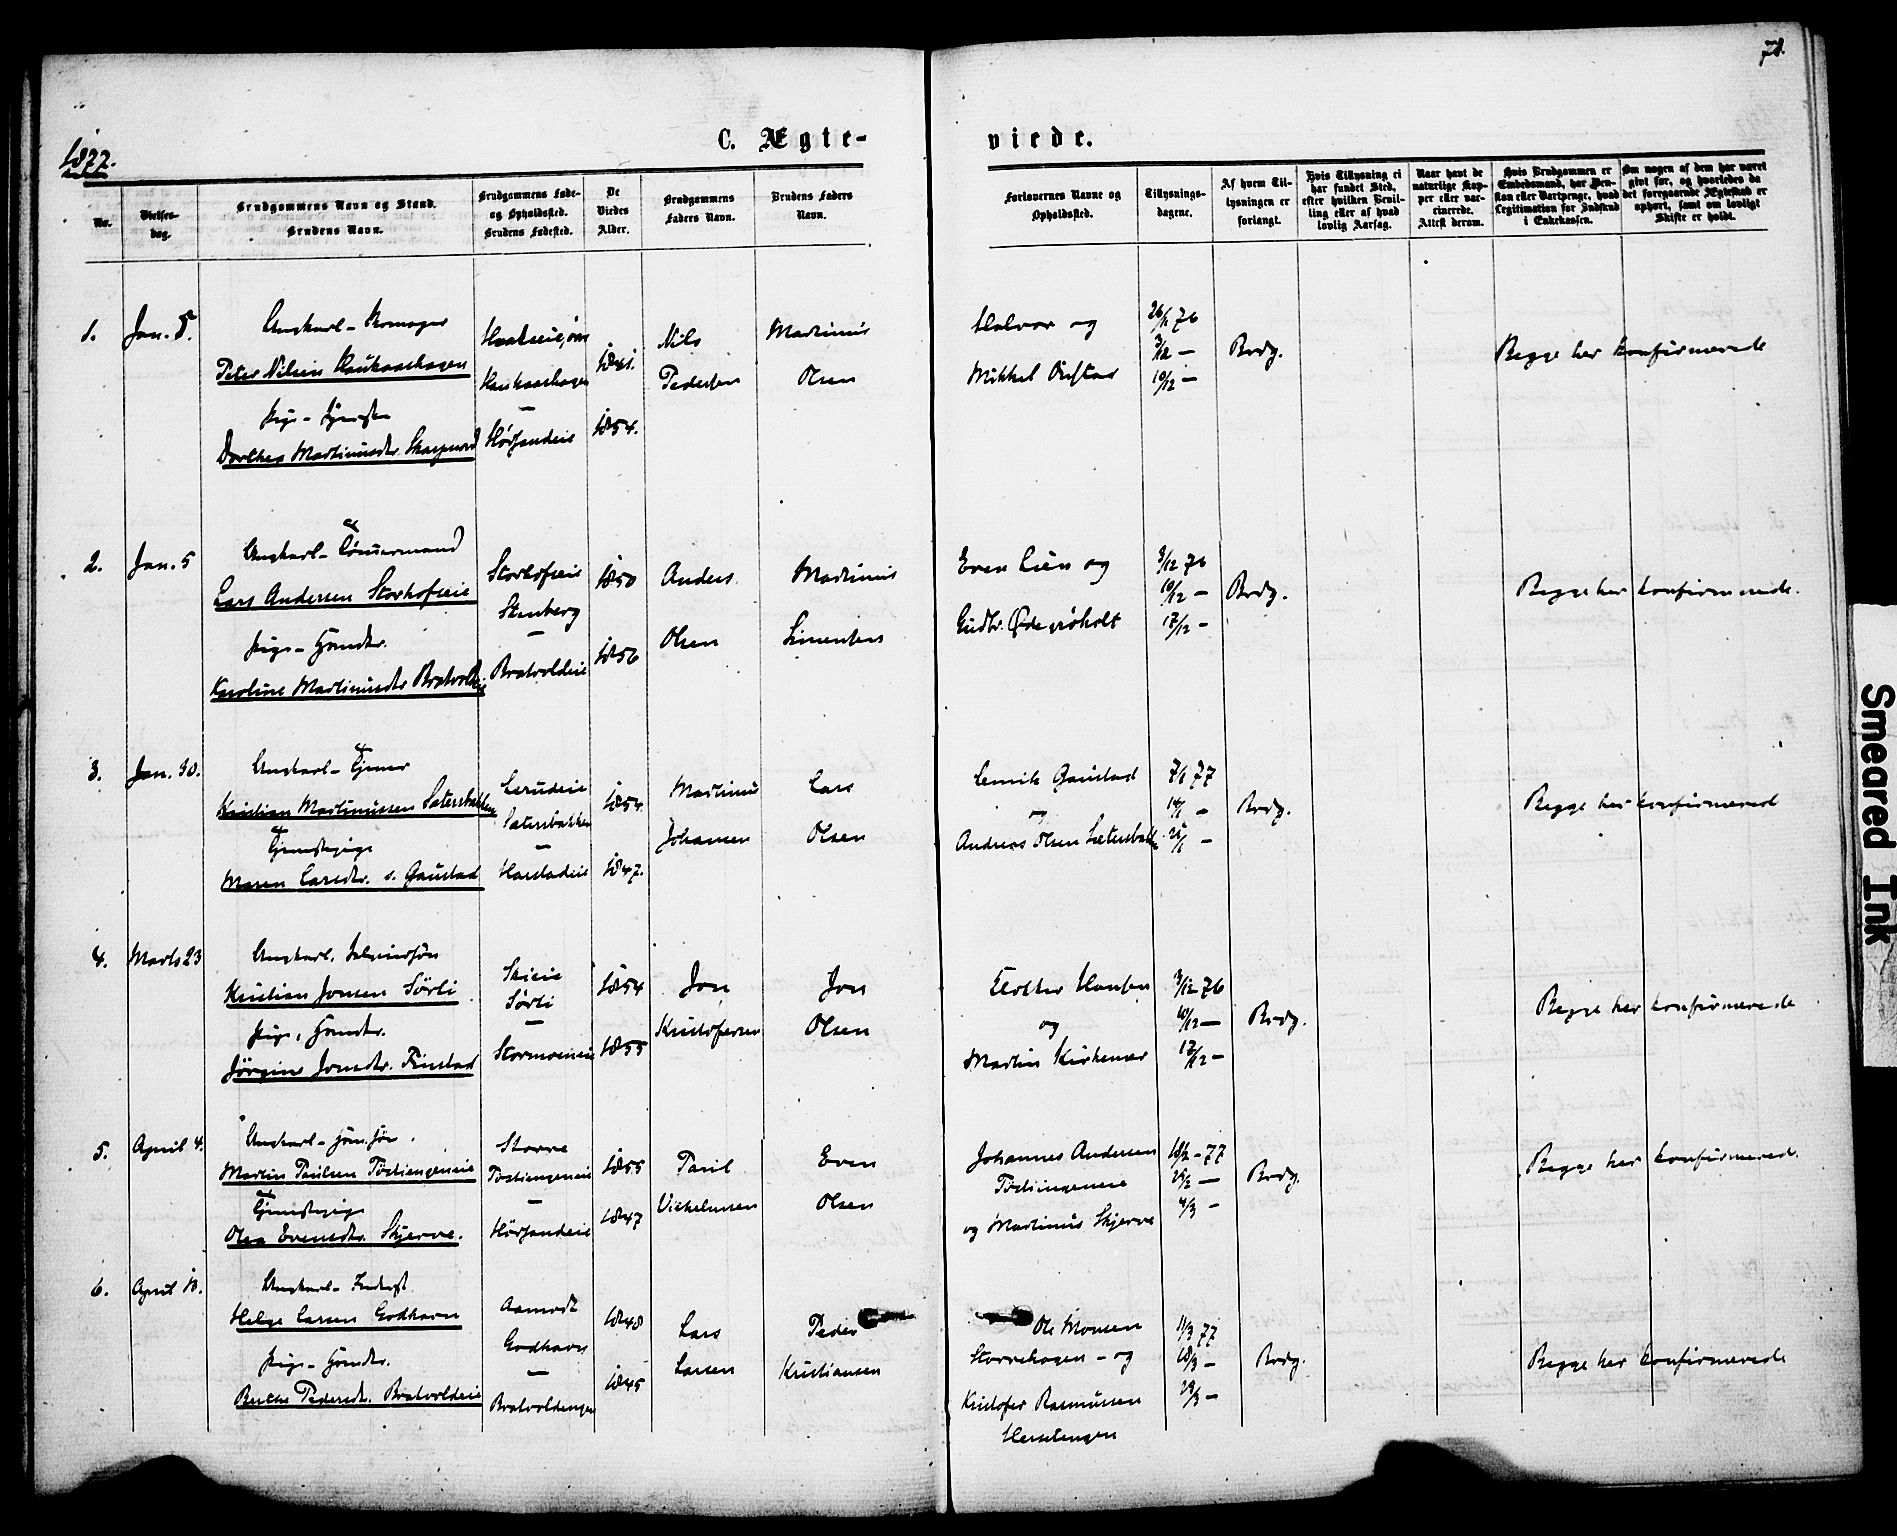 71.
1877.
C. Ægte-
viede.
No.
Vielses-
dag.
Brudgommens Navn og Stand.
Brudens Navn.
Brudgommens Føde-
og Opholdssted.
Brudens Fødested.
De
Viedes
Alder.
Brudgommens
Faders Navn.
Brudens Faders
Navn.
Forlovernes Navne og
Opholdssted.
Tillysnings-
dagene.
Af hvem Til-
lysningen er
forlangt.
Hvis Tillysning ei
har fundet Sted,
efter hvilken Bevil-
ling eller af hvad
lovlig Aarsag.
Naar havt de
naturlige Kop-
per eller vac-
cinerede.
Attest derom.
Hvis Brudgommen er
Embedsmand, har Pen-
sion eller Vartpenge, hvad
Legitimation for Indskud
i Enkekassen.
Om nogen af dem har været
gift før, og hvorledes da
det foregaaende Ægteskab er
ophørt, samt om lovligt
Skifte er holdt.
1. Jan. 5.
Ungkarl - Skomager
Peter Nilsen Haukaashagen
Pige
Dorthea Martinusdtr.
Haukaashagen
Hørsandeie
1841.
1854.
Nils
Pedersen
Martinus
Olsen
Halvor og
Mikkel
26/11 76
3/12 -
10/12 -
Brdg.
Begge her konfirmerede
2. Jan. 5
Ungkarl - Tømmermand
Lars Andersen Storhofseie
Pige - Gmdtr.
Karoline Martinusdtr Bratvoldeie
Storhofseie
Stenberg
-
Bratvoldeie
1850
1856
Anders
Olsen
Martinus
Simensen
Even Lien og
Gudbr. Ødegaardholt
3/12 76
10/12 -
17/12 -
Brdg.
Begge her konfirmerede.
3. Jan. 30.
Ungkarl - Tjener
Kristian Martinussen Sætersbakken
Tjenestepige
Maren Larsdtr. s. Gaustad
Lerudeie
Sætersbakken
-
Harstadeie
1854.
1847.
Martinus
Johansen
Lars
Olsen
Gaustad
og
Andreas Olsen Sætersbakken
7/1 77
14/1 -
21/1 -
Brdg.
Begge her konfirmerede
4. Marts 23
Ungkarl. Selveiersøn
Kristian Jonsen Sörli
Pige, Gmdtr.
Jörgine Jonsdtr. Finstad
Skieie
Sörli
-
Stormoeneie
1854
1855
Jon
Kristofersen
Jon
Olsen
Hansen
og
Martin Kirkemoe
3/12 76
10/12 -
17/12 -
Brdg.
Begge her konfirmerede
5. April 4.
Ungkarl - Gmsøn
Martin Paulsen Töstiengeneie
Tjenestepige
Olea Evensdtr. Skjerve.
Storre
Töstiengeneie
-
Hörsandeie
1855
1847
Paul
Vilhelmsen
Even
Olsen
Johannes Andersen
Töstiengeneie
og Martinus Skjerve
18/2 - 77
25/2 -
4/3 -
Brdg.
Begge her konfirmerede.
6. April 10.
Ungkarl - Inderst
Helge Larsen Godhavn
Pige - Gmdtr.
Berthe Pedersdtr. Bratvoldeie
Aamodt
Godhavn
-
Bratvoldengen
1848
1845
Lars
Larsen
Peder
Kristiansen
Ole Monsen
Storrehagen - og
Kristofer Rasmussen
11/3 77
18/3 -
Brdg.
Begge her konfirmerede
Smeared Ink